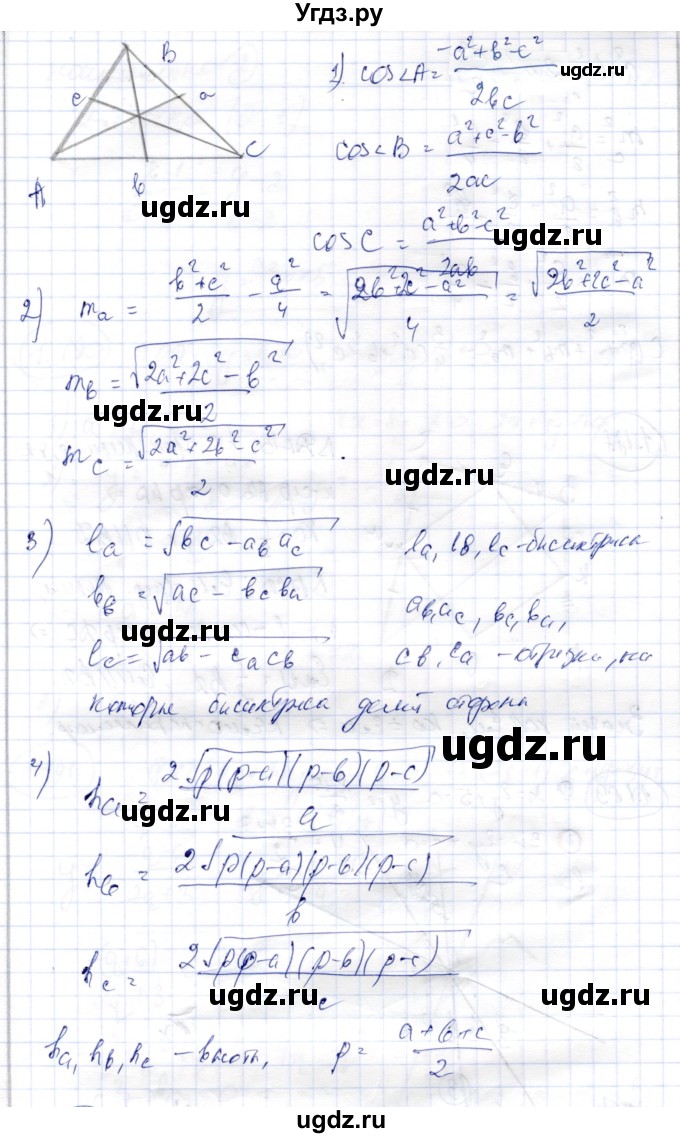 Угдз.ру
B
c a
A b C
1) cos∠A = (-a²+b²-c²)/(2bc)
ugdz.ru
cos∠B = (a²+c²-b²)/(2ac)
ugdz.ru
cos C = (a²+b²-c²)/(2ab)
ugdz.ru
2) mₐ = (b²+c²)/2 - a²/4 = √((2b²+2c²-a²)/4) = √(2b²+2c²-a²)/2
m_b = √(2a²+2c²-b²)/2
ugdz.ru
m_c = √(2a²+2b²-c²)/2
ugdz.ru
3) lₐ = √(bc - a_b a_c) lₐ, l_b, l_c - биссектриса
l_b = √(ac - b_c b_a) a_b, a_c, b_c, b_a,
ugdz.ru
l_c = √(ab - c_a c_b) c_b, c_a - отрезки, на
ugdz.ru
которые биссектриса делит стороны
ugdz.ru
4) hₐ = 2√(p(p-a)(p-b)(p-c))/a
ugdz.ru
h_b = 2√(p(p-a)(p-b)(p-c))/b
h_c = 2√(p(p-a)(p-b)(p-c))/c
ugdz.ru
ugdz.ru
hₐ, h_b, h_c - высоты, p = (a+b+c)/2
ugdz.ru
ugdz.ru